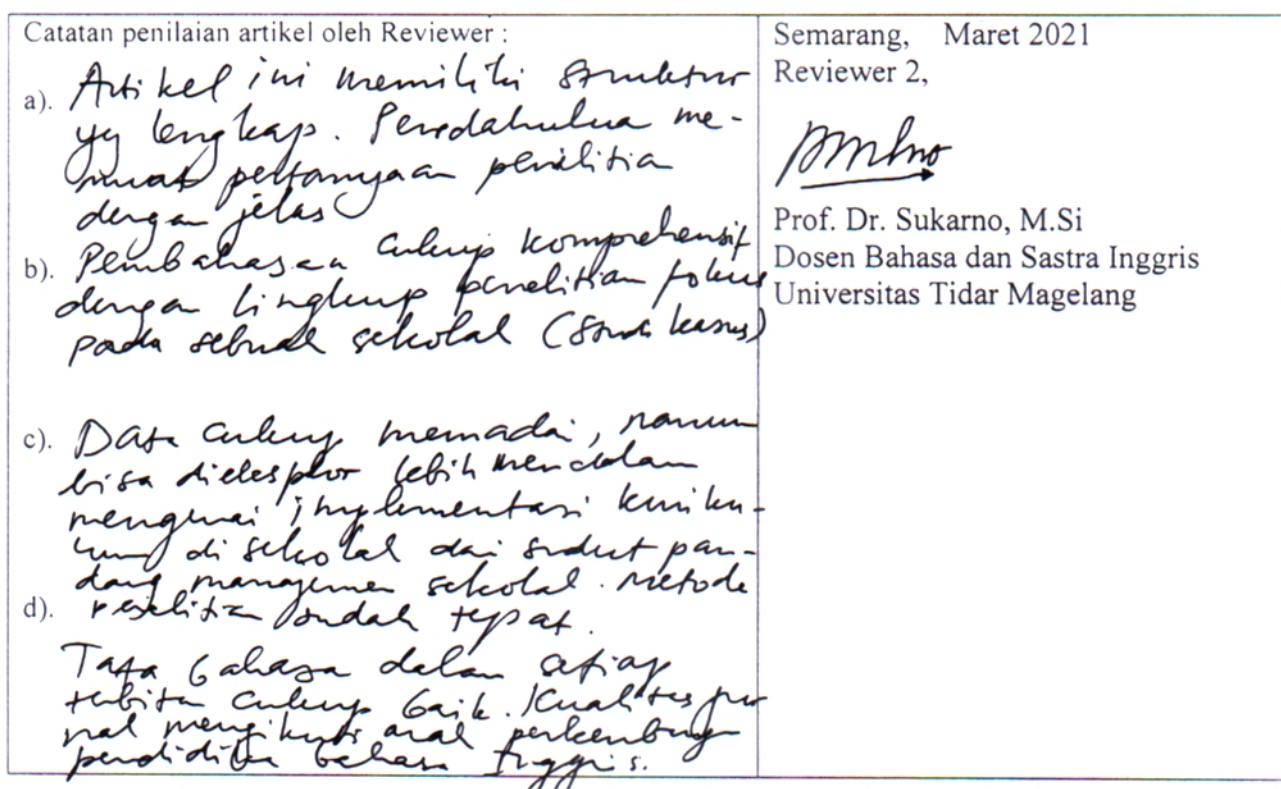 Catatan penilaian artikel oleh Reviewer :
a). Artikel ini memiliki struktur
yg lengkap. Pendahulua me-
muat pertanyaan penelitian
dengan jelas
b). Pembahasan cukup komprehensif
dengan lingkup penelitian fokus
pada sebuah sekolah (studi kasus)
c). Data cukup memadai, namun
bisa dieksplor lebih mendalam
mengenai implementasi kuriku-
lum di sekolah dari sudut pan-
dang manajemen sekolah. Metode
d). penelitian sudah tepat.
Tata bahasa dalam setiap
terbitan cukup baik. Kualitas jur
nal mengikuti arah perkembangan
pendidikan bahasa Inggris.
Semarang, Maret 2021
Reviewer 2,
Prof. Dr. Sukarno, M.Si
Dosen Bahasa dan Sastra Inggris
Universitas Tidar Magelang